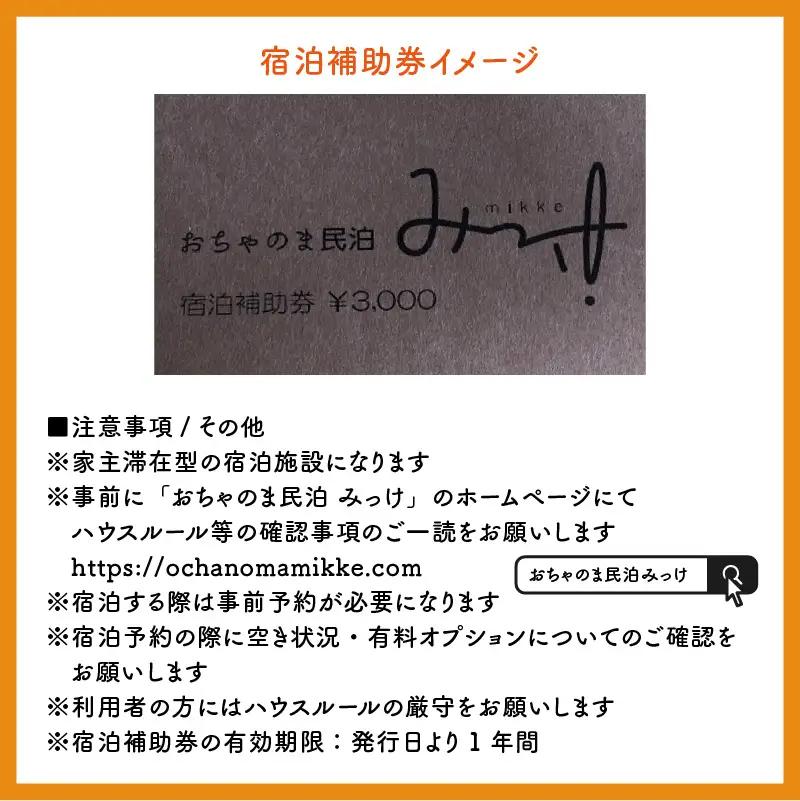 宿泊補助券イメージ
みっけ!
mikke
おちゃのま民泊
宿泊補助券 ¥3,000
■注意事項 / その他
※家主滞在型の宿泊施設になります
※事前に「おちゃのま民泊 みっけ」のホームページにて
ハウスルール等の確認事項のご一読をお願いします
https://ochanomamikke.com
おちゃのま民泊みっけ
※宿泊する際は事前予約が必要になります
※宿泊予約の際に空き状況・有料オプションについてのご確認を
お願いします
※利用者の方にはハウスルールの厳守をお願いします
※宿泊補助券の有効期限：発行日より 1 年間